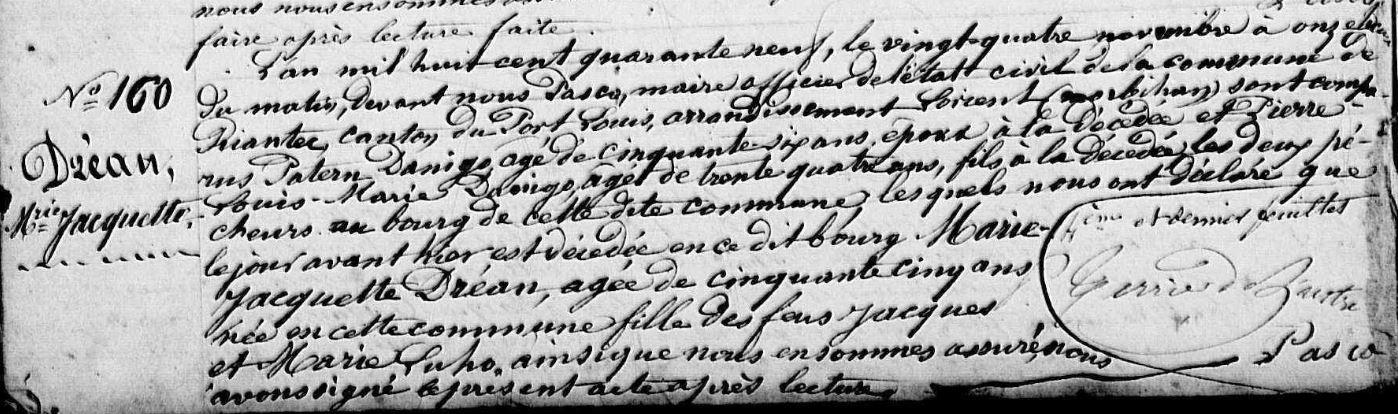 nous nous en sommes
faire après lecture faite.
N° 160
Dréan,
Mrie Jacquette,
L'an mil huit cent quarante neuf, le vingt-quatre novembre à onze heures
du matin, devant nous Pasco, maire officier de l'état civil de la commune de
Riantec, canton du Port Louis, arrondissement Lorient (morbihan) sont compa-
rus Patern Danigo, agé de cinquante six ans, époux à la décédée et Pierre
Louis-Marie Danigo, agé de trente quatre ans, fils à la decedée, les deux pé-
cheurs au bourg de cette dite commune lesquels nous ont déclaré que
le jour avant hier est décedée en ce dit bourg Marie-
Jacquette Dréan, agée de cinquante cinq ans
née en cette commune fille des feus Jacques
et Marie Luho, ainsi que nous en sommes assuré nous
avons signé le présent acte après lecture
et dernier feuillet
Pasco